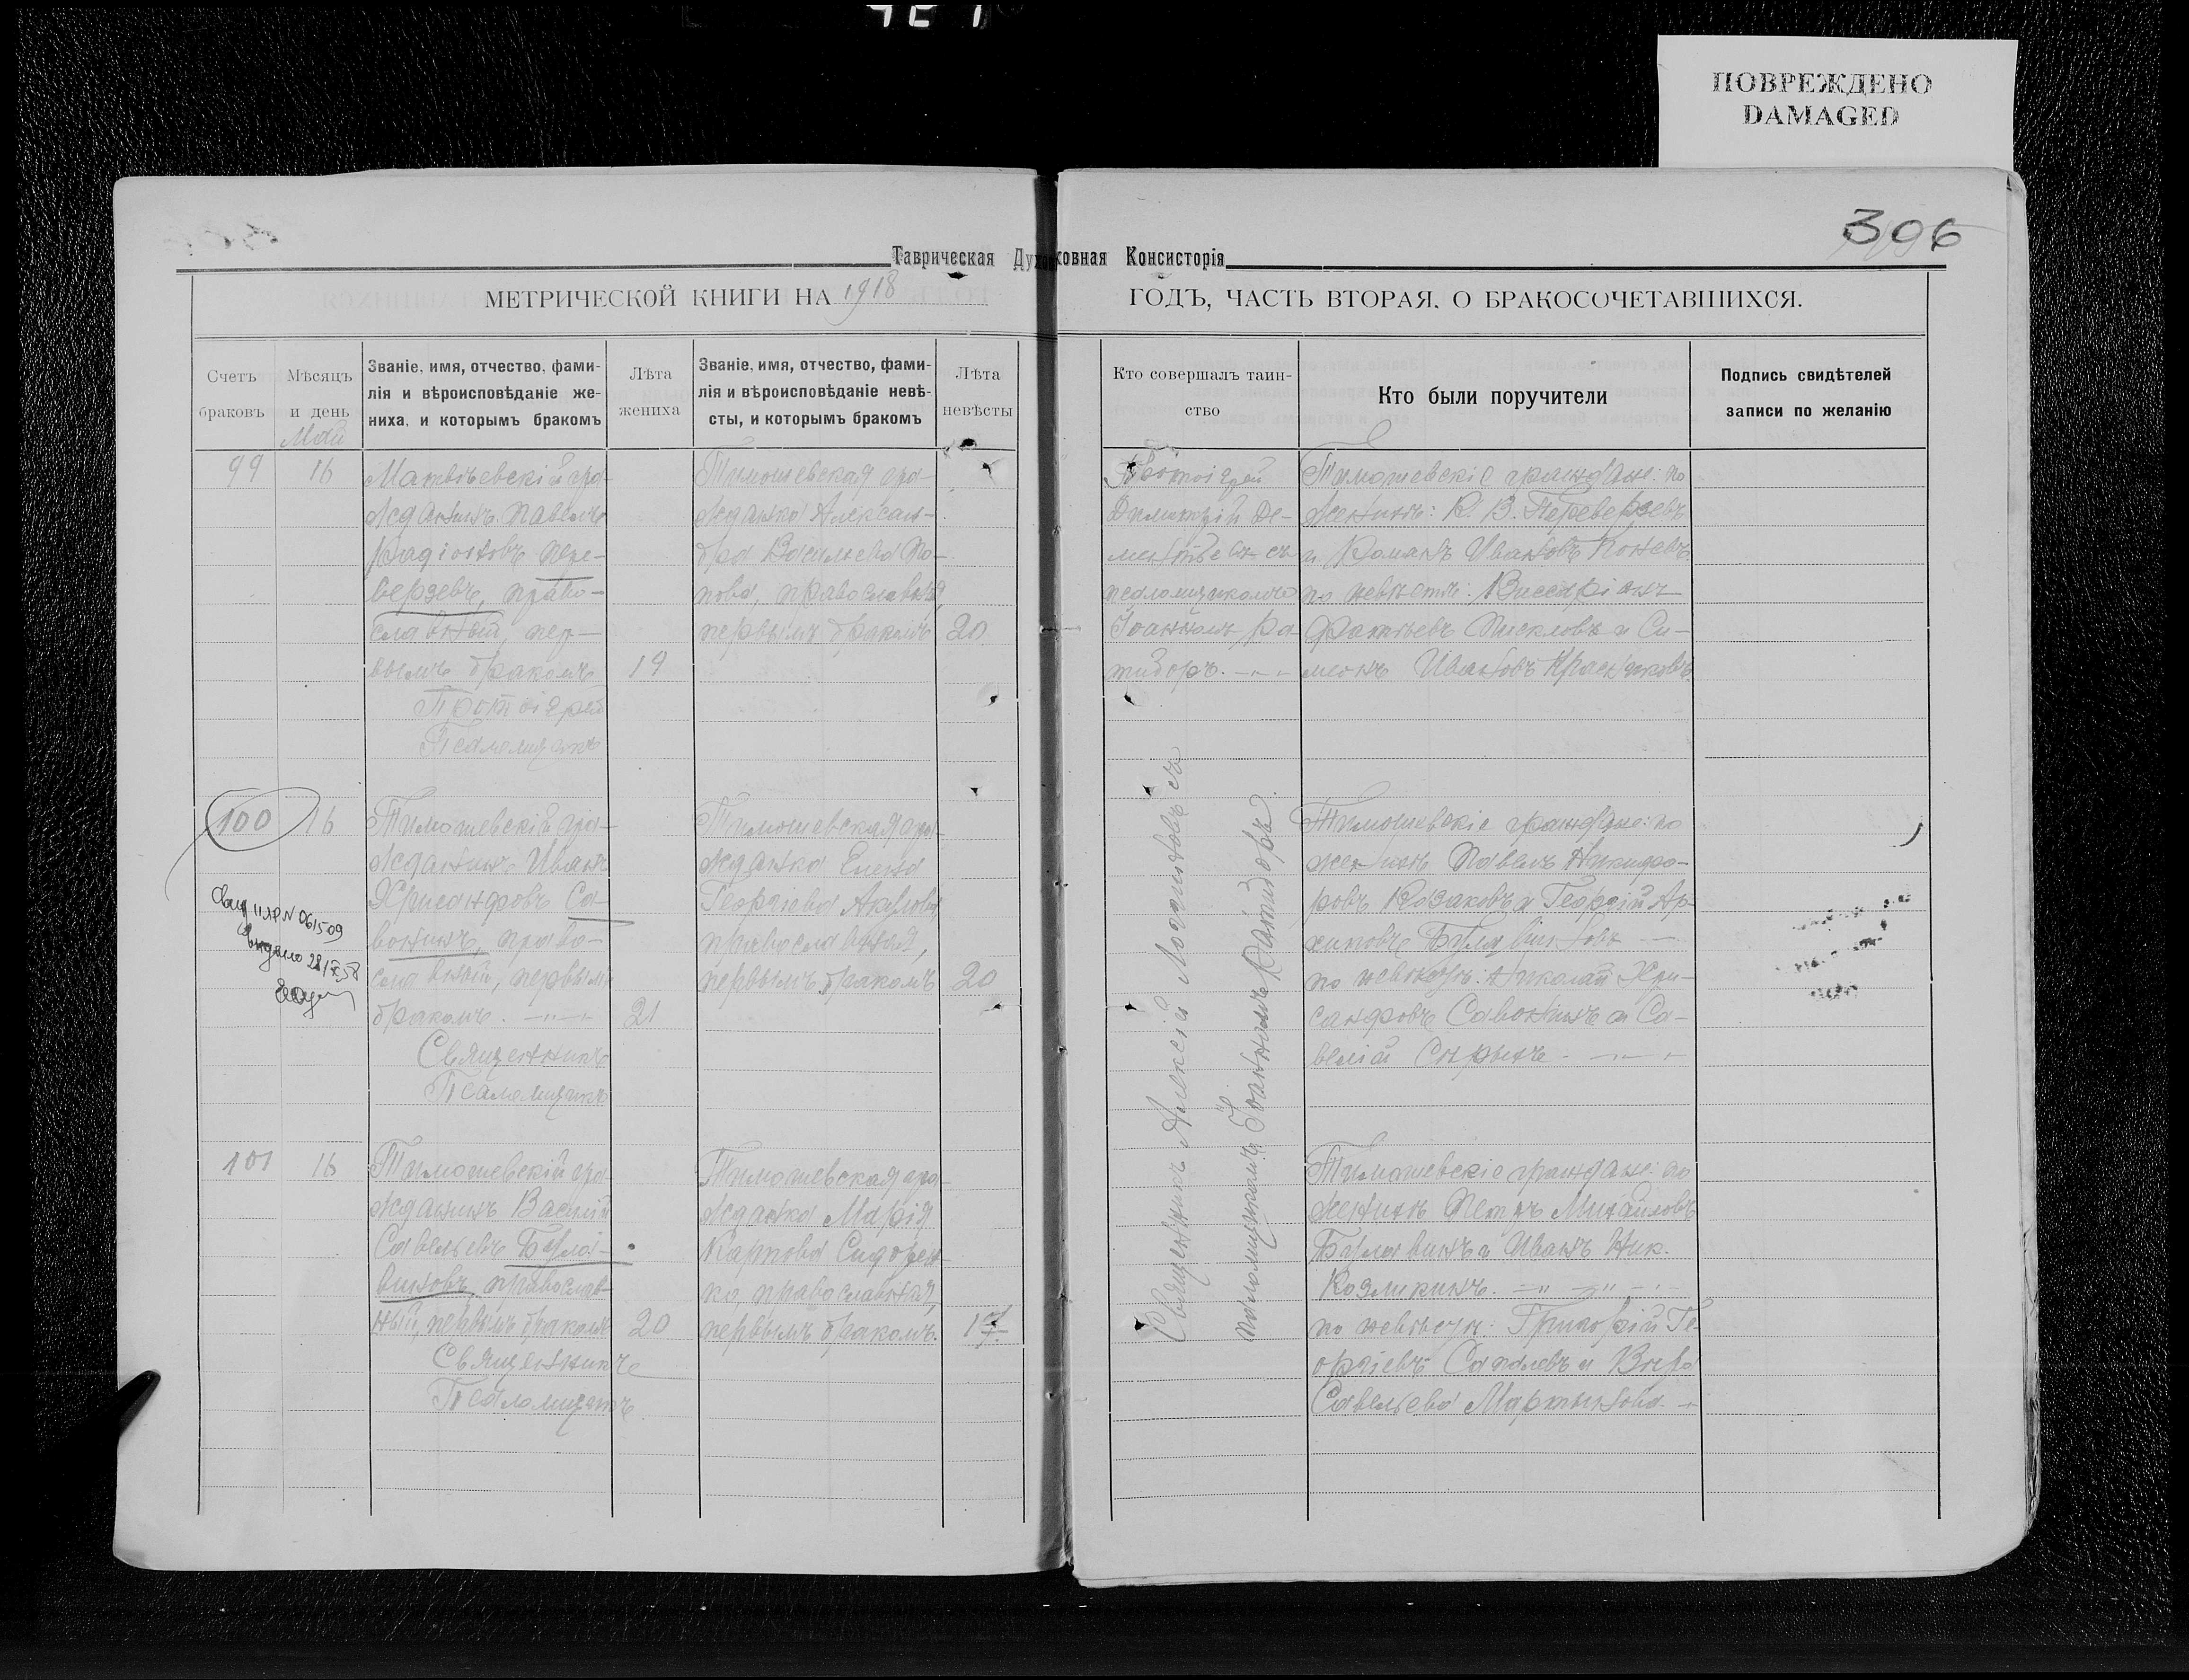 ПОВРЕЖДЕНО
DAMAGED
396
Таврическая Духовная Консисторія
МЕТРИЧЕСКОЙ КНИГИ НА 1918 ГОДЪ, ЧАСТЬ ВТОРАЯ, О БРАКОСОЧЕТАВШИХСЯ.
Счетъ
браковъ
Мѣсяцъ
и день
Май
Званіе, имя, отчество, фами-
лія и вѣроисповѣданіе же-
ниха, и которымъ бракомъ
Лѣта
жениха
Званіе, имя, отчество, фами-
лія и вѣроисповѣданіе невѣ-
сты, и которымъ бракомъ
Лѣта
невѣсты
Кто совершалъ таин-
ство
Кто были поручители
Подпись свидѣтелей
записи по желанію
99
16
Матвѣевскій гра-
жданинъ Павелъ
Родіоновъ Пере-
верзевъ, право-
славный, пер-
вымъ бракомъ
19
Протоіерей
Псаломщикъ
Тимошевская гра-
жданка Алексан-
дра Васильева По-
пова, православная,
первымъ бракомъ
20
Протоіерей
Димитрій Де-
ментьевъ съ
псаломщикомъ
Іоанномъ Ра-
тидоръ.
Тимошевскіе граждане: по
женихѣ: К. В. Переверзевъ
и Романъ Ивановъ Коневъ
по невѣстѣ: Виссаріонъ
Фатѣевъ Пискловъ и Си-
меонъ Ивановъ Красниковъ.
100
16
Тимошевскій гра-
жданинъ Иванъ
Хрисанфовъ Са-
вонинъ, право-
славный, первымъ
бракомъ.
21
Священникъ
Псаломщикъ
Тимошевская гра-
жданка Елена
Георгіева Акулова,
православная,
первымъ бракомъ
20
№ 061509
Священникъ Алексій съ
псаломщикомъ Іоанномъ Ратидоръ
Тимошевскіе граждане: по
женихѣ Павелъ Никифо-
ровъ Козаковъ и Георгій Ар-
хиповъ Булавиновъ
по невѣстѣ: Николай Хри-
санфовъ Савонинъ и Са-
велій
101
16
Тимошевскій гра-
жданинъ Василій
Савельевъ Була-
виновъ, православ-
ный, первымъ бракомъ
20
Священникъ
Псаломщикъ
Тимошевская гра-
жданка Марія
Карпова Сидорен-
ко, православная,
первымъ бракомъ.
Тимошевскіе граждане: по
женихѣ Петръ Михайловъ
Булавинъ и Иванъ Ник.
Козликинъ.
по невѣстѣ: Григорій Ге-
оргіевъ и Вѣра
Савельева Мартынова